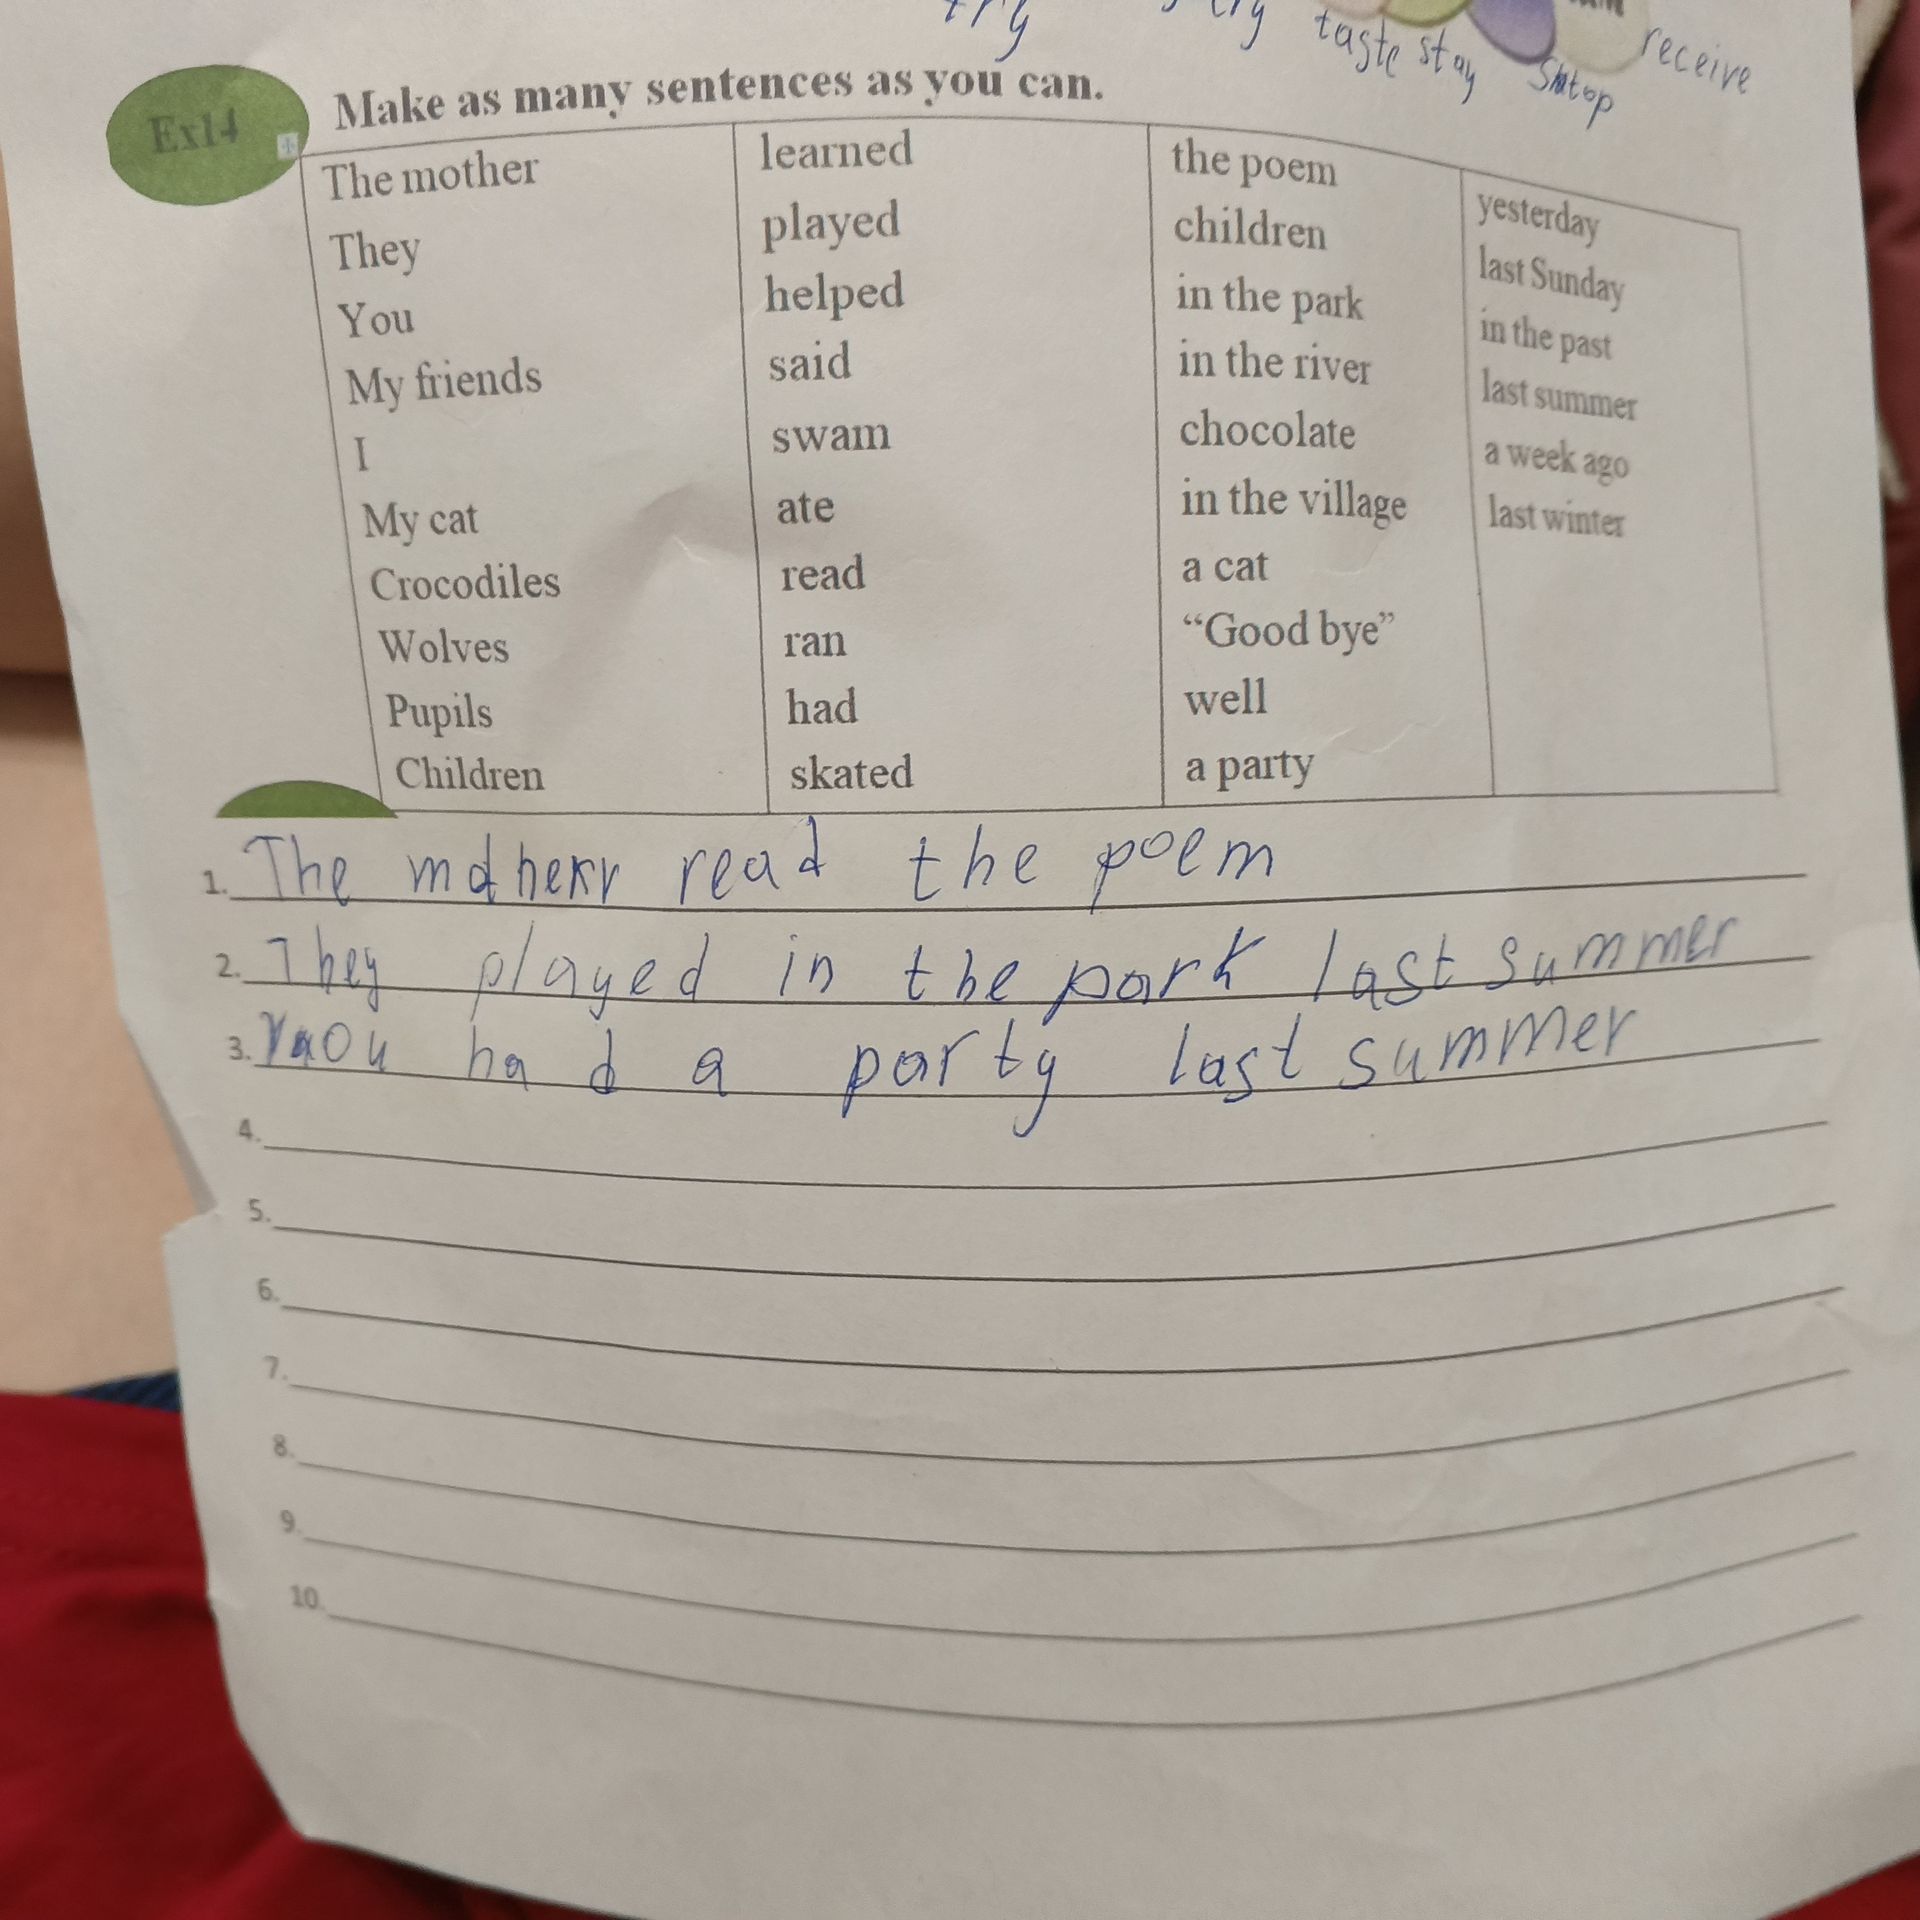 try taste stay Stop receive
Ex14 Make as many sentences as you can.
The mother learned the poem yesterday
They played children last Sunday
You helped in the park in the past
My friends said in the river last summer
I swam chocolate a week ago
My cat ate in the village last winter
Crocodiles read a cat
Wolves ran “Good bye”
Pupils had well
Children skated a party
1. The read the poem
2. They played in the park last summer
3. had a party last summer
4.
5.
6.
7.
8.
9.
10.